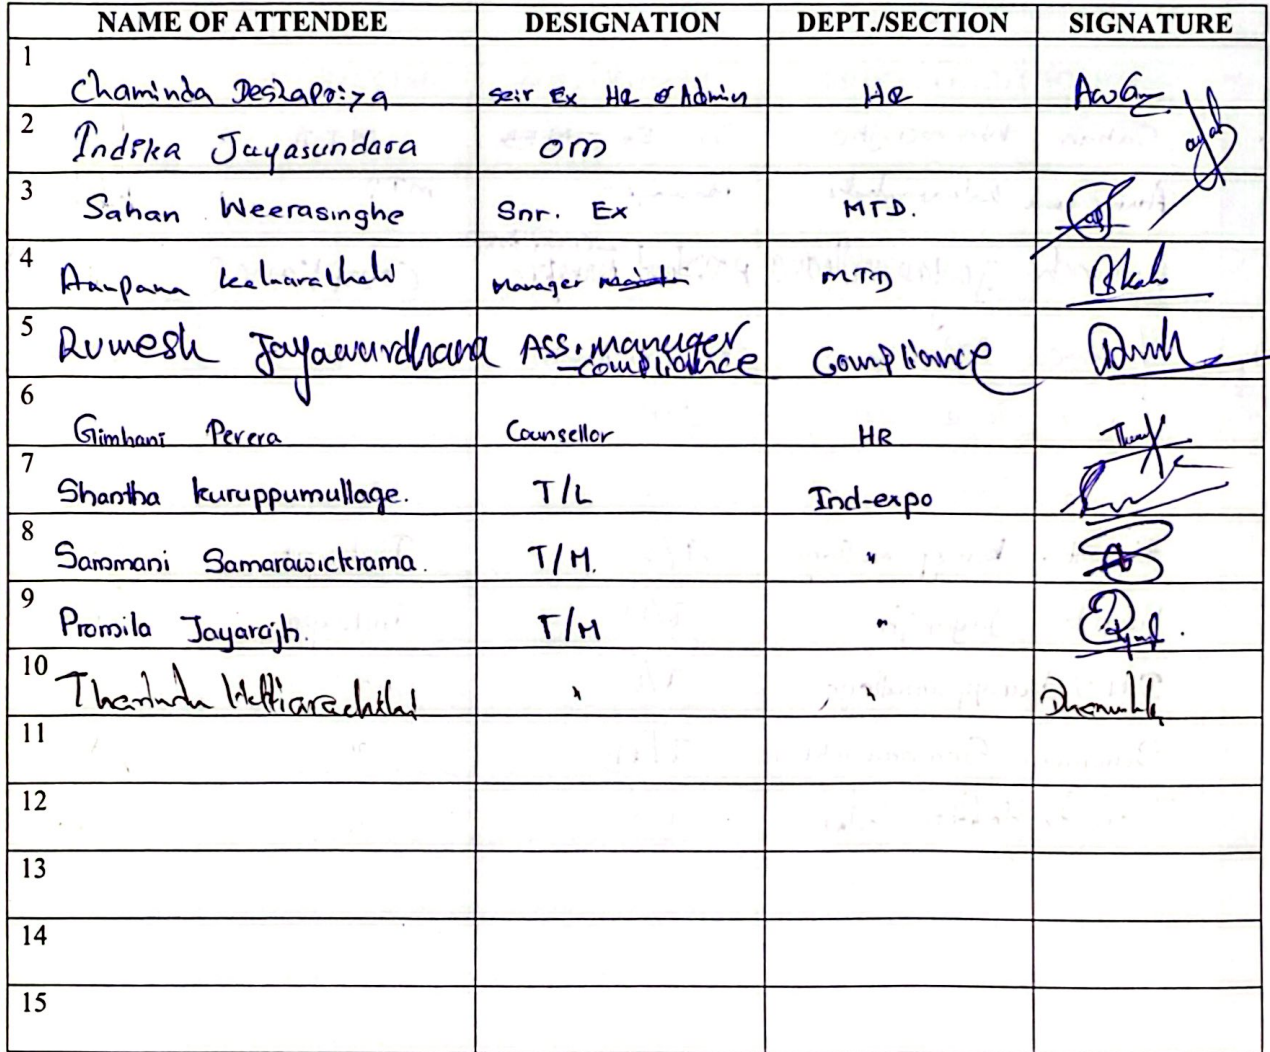 NAME OF ATTENDEE DESIGNATION DEPT./SECTION SIGNATURE
1 Chaminda Deshapriya Ex HR & Admin HR
2 Indika Jayasundara OM
3 Sahan Weerasinghe Snr. Ex MTD.
4 Manager MTD
5 Rumesh Jayawardhana Ass. manager - compliance Compliance
6 Gimhani Perera Counsellor HR
7 Shantha Kuruppumullage. T/L Ind-expo
8 Sammani Samarawickrama. T/M. "
9 Promila Jayarajh. T/M "
10 Tharindu Hettiarachchi " "
11
12
13
14
15